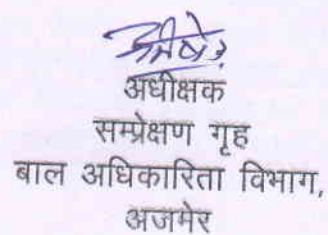 अधीक्षक
सम्प्रेक्षण गृह
बाल अधिकारिता विभाग,
अजमेर